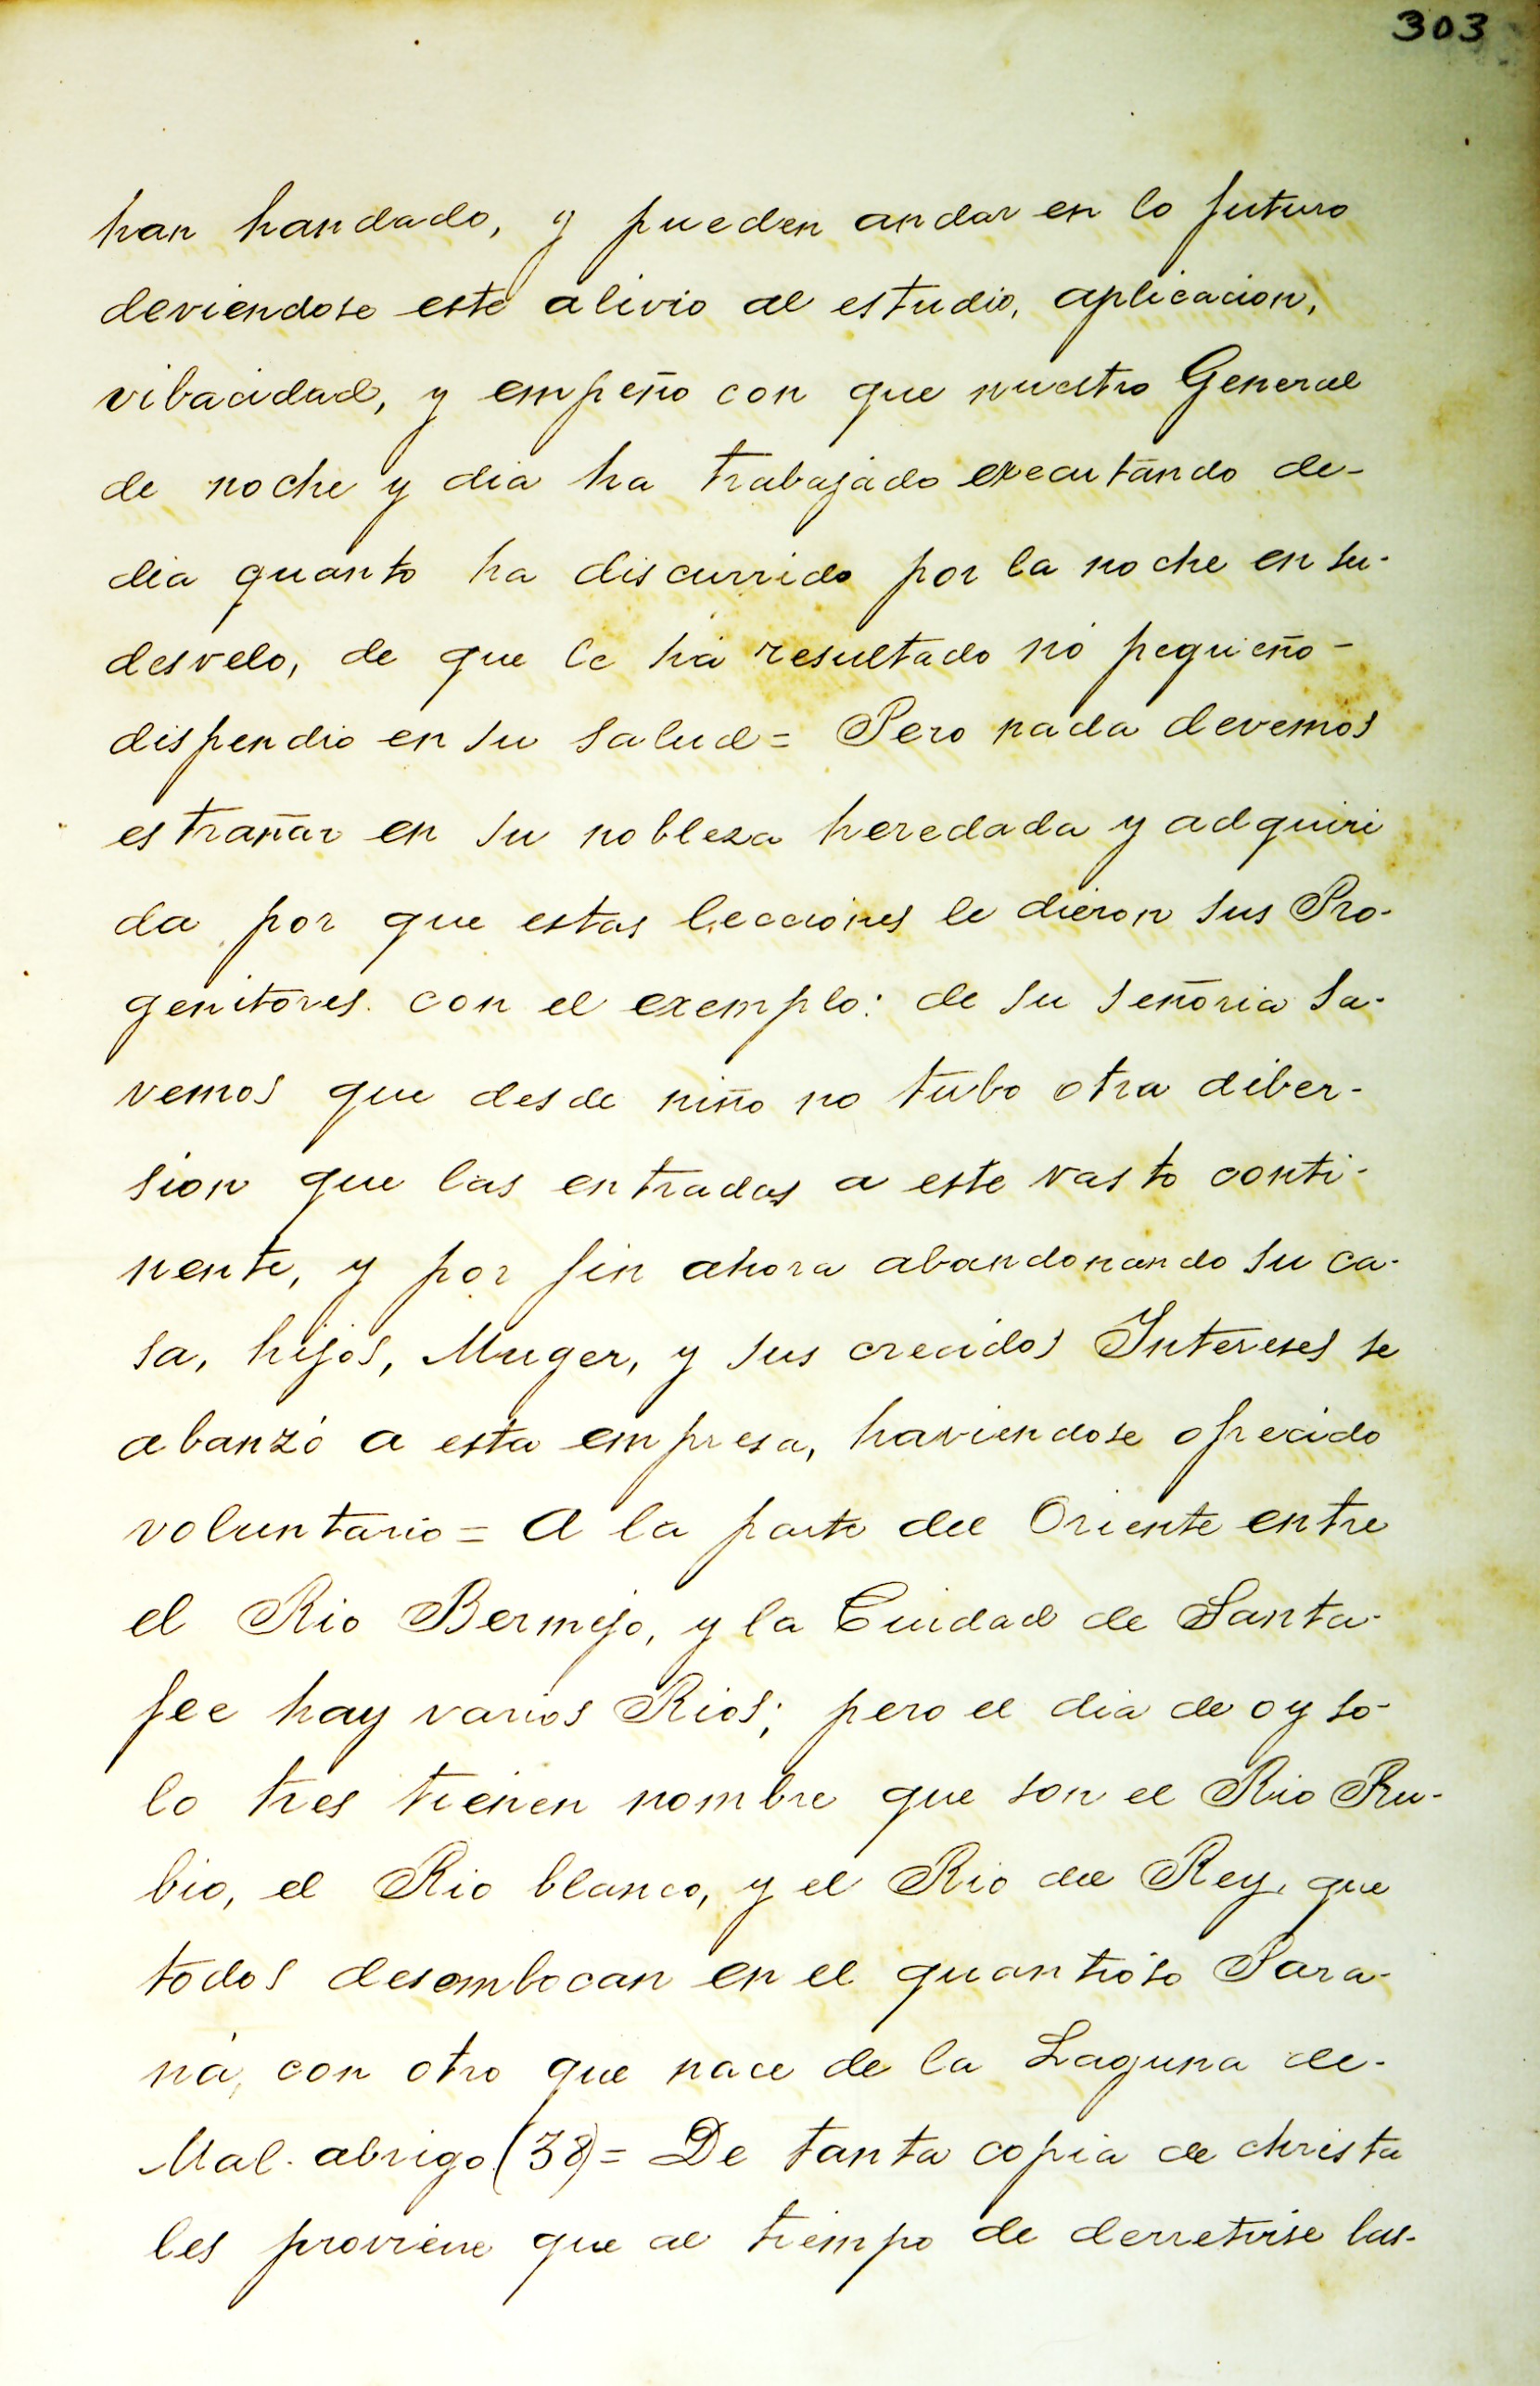 303
han handado, y pueden andar en lo futuro
deviendose este alivio al estudio, aplicacion,
vibacidad, y empeño con que nuestro General
de noche y dia ha trabajado executando de-
dia quanto ha discurrido por la noche en su-
desvelo, de que le há resultado nó pequeño-
dispendio en su salud= Pero nada devemos
estrañar en su nobleza heredada y adquiri
da por que estas lecciones le dieron sus Pro-
genitores. con el exemplo: de su señoria sa-
vemos que desde niño no tubo otra diber-
sion que las entradas a este vasto conti-
nente, y por fin ahora abandonando su ca-
sa, hijos, Muger, y sus crecidos Intereses se
abanzó a esta empresa, haviendose ofrecido
voluntario= A la parte del Oriente entre
el Rio Bermejo, y la Ciudad de Santa-
fee hay varios Rios; pero el dia de oy so-
lo tres tienen nombre que son el Rio Ru-
bio, el Rio blanco, y el Rio del Rey, que
todos desembocan en el quantioso Para-
ná, con otro que nace de la Laguna de-
Mal-abrigo (38)= De tanta copia de christa
les proviene que al tiempo de derretirse las-